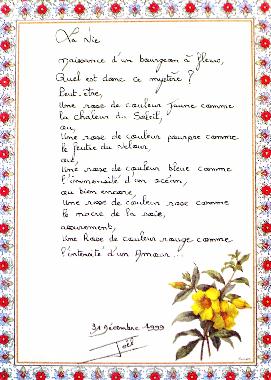 La Vie
naissance d'un bourgeon à fleurs,
Quel est donc ce mystère ?
Peut-être,
Une rose de couleur jaune comme
la chaleur du Soleil,
ou,
Une rose de couleur pourpre comme
le feutre du velour,
ou,
Une rose de couleur bleue comme
l'immensité d'un océan,
ou bien encore,
Une rose de couleur rose comme
le nacre de la soie,
assurément,
Une Rose de couleur rouge comme
l'intensité d'un Amour !!
31 Décembre 1999
Joël